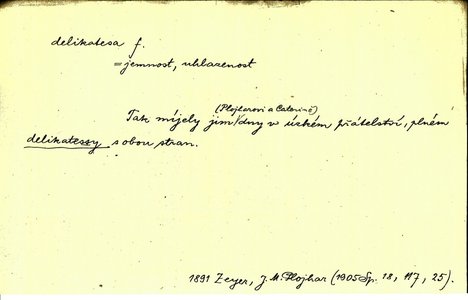 delikatesa f.
= jemnost, uhlazenost
(Plojharovi a Caterině)
Tak míjely jim/dny v úzkém přátelství, plném
delikatessy s obou stran.
1891 Zeyer, J. M. Plojhar (1905 Sp. 18, 117, 25).